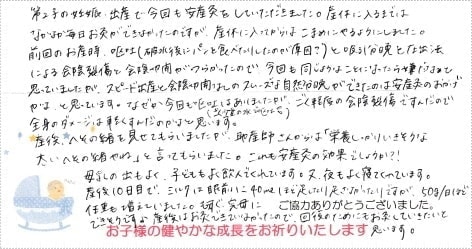 第2子の妊娠、出産で今回も安産灸をしていただきました。産休に入るまでは
なかなか毎日お灸ができなかったのですが、産休に入ってからはこまめにやるようにしました。
前回のお産時、嘔吐(破水後にパンを食べたりしたのが原因?)と吸引分娩と圧出法
による会陰裂傷と会陰切開がつらかったので、今回も同じようなことになったら嫌だなぁと
思っていましたが、スピード出産と会陰切開なしのスムーズな自然分娩ができたのは安産灸のおかげ
かな、と思っています。なぜか今回も嘔吐はありましたが、ごく軽度の会陰裂傷ですんだので
全身のダメージは軽くすんだのかなと思います。
産後、へその緒を見せてもらいましたが、助産師さんからは「栄養しっかりいきそうな
太いへその緒やね」と言ってもらいました。これも安産灸の効果でしょうか?!
母乳の出もよく、子どももよく飲んでくれています。又、夜もよく寝てくれています。
産後10日目で、ミルクは眠前に40mlほど足したり足さなかったりですが、50g/日ほど
体重も増えていました。
ご協力ありがとうございました。
産後はお灸できていなかったので、回復のためにもお灸していきたいと
思います。
お子様の健やかな成長をお祈りいたします